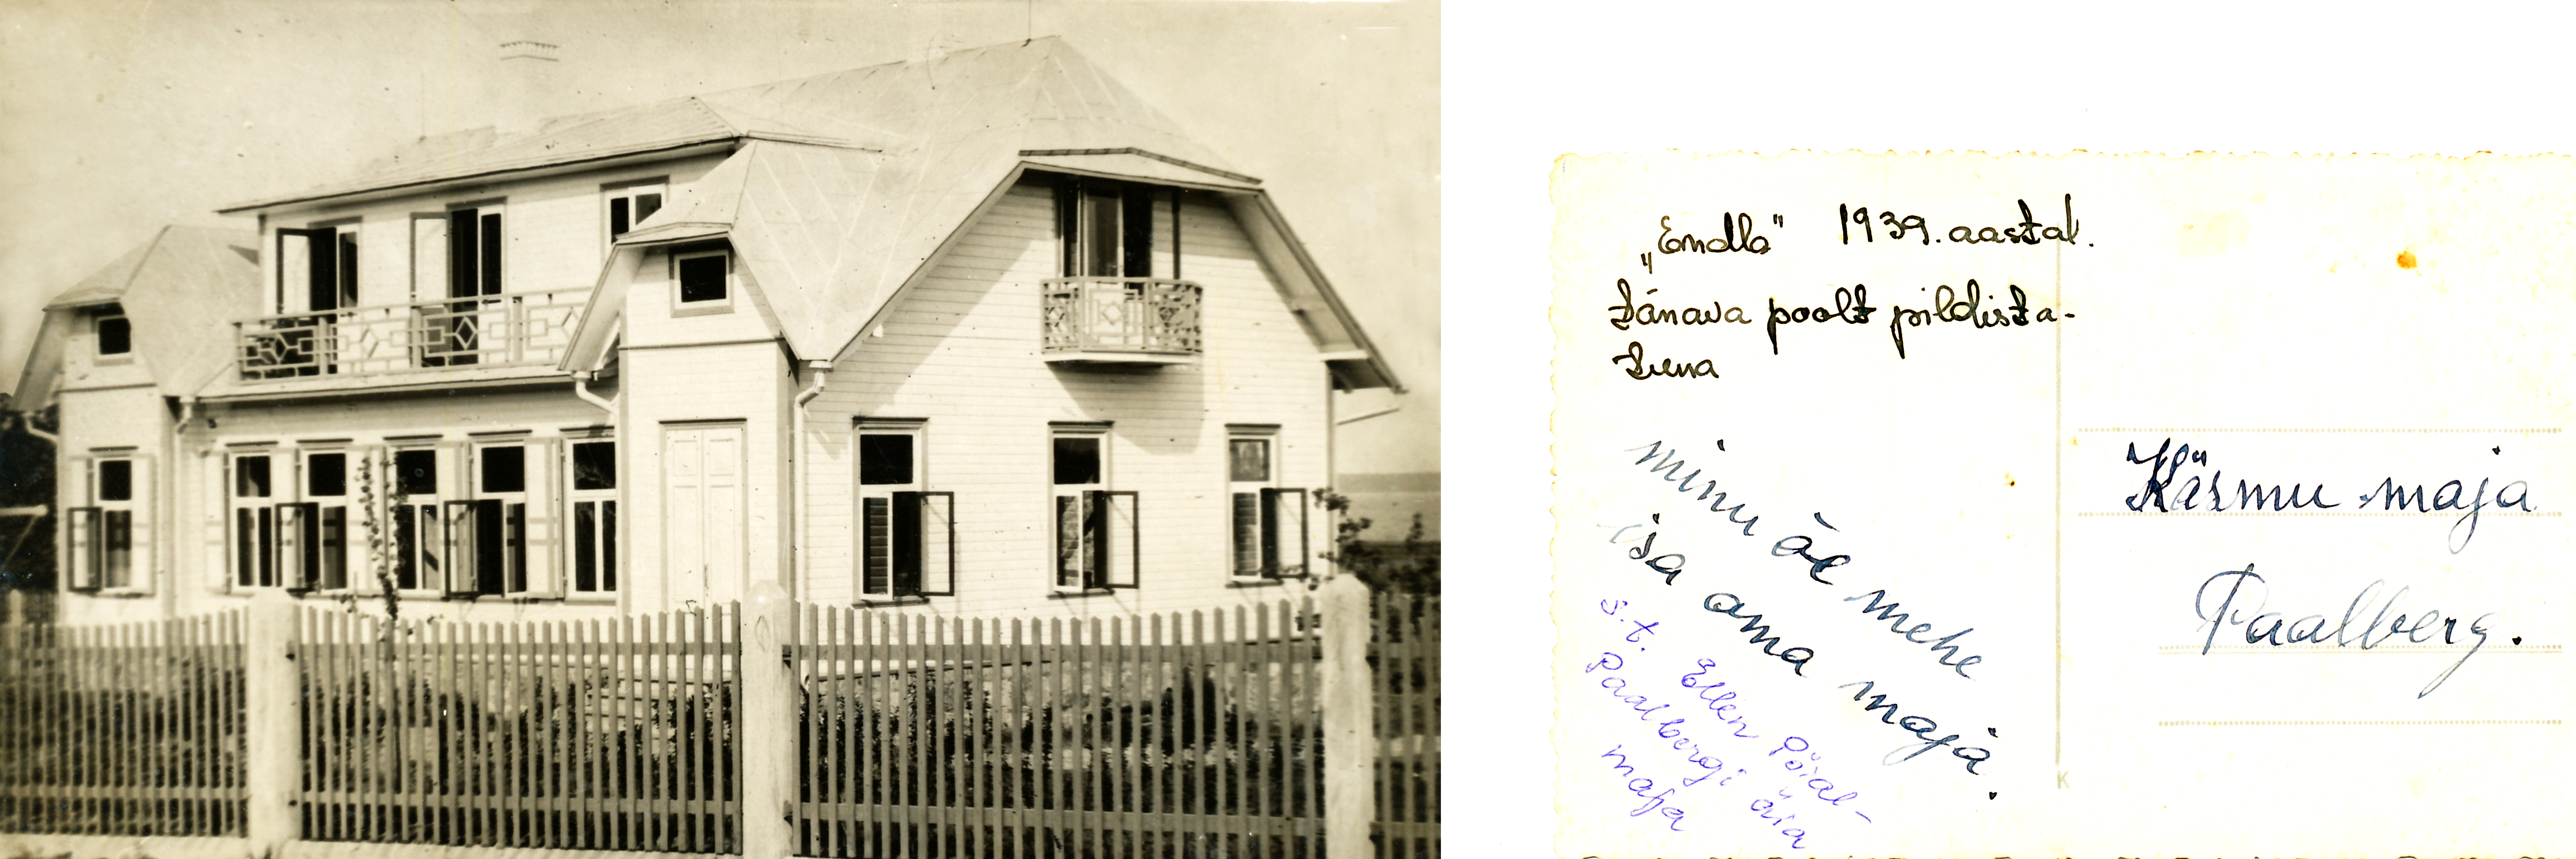 „Endla" 1939. aastal.
tänava poolt pildista-
tuna
minu õe mehe
isa oma maja.
s.t. Ellen Põial-
Paalbergi äia
maja
Käsmu maja
Paalberg.
K